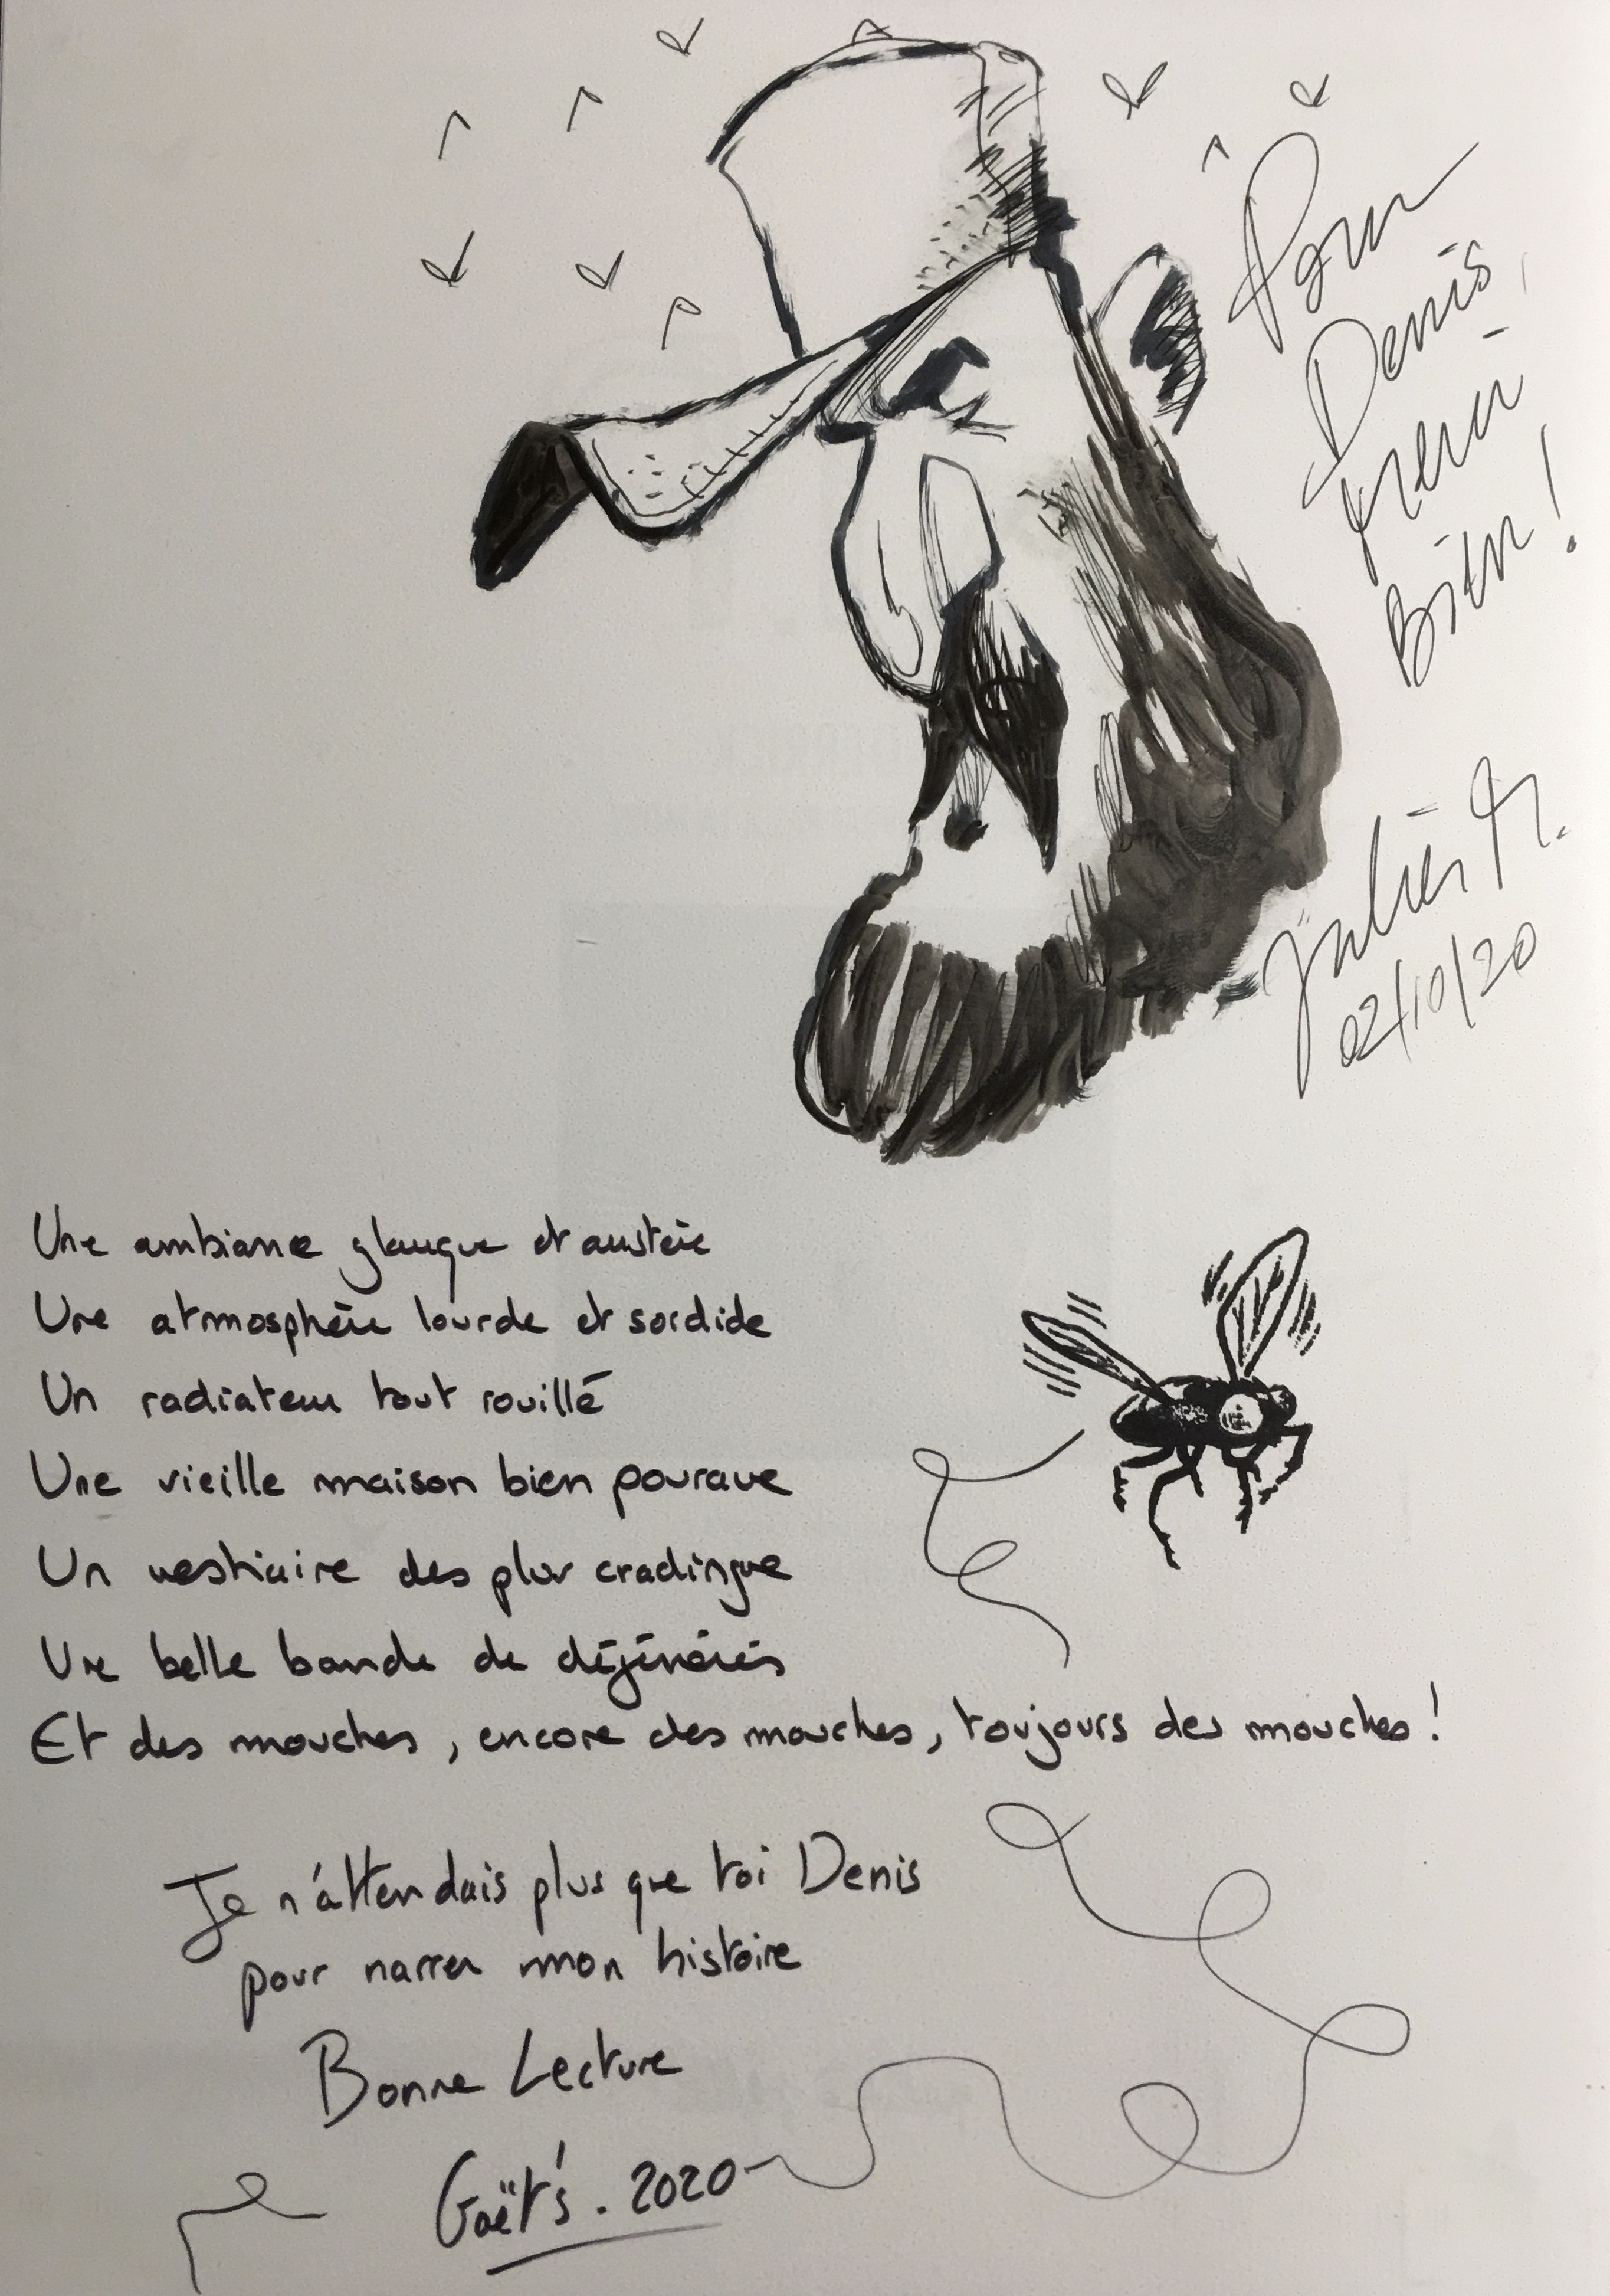 Pour
Denis,
Merci
Bien !
Julien M.
02/10/20
Une ambiance glauque et austère
Une atmosphère lourde et sordide
Un radiateur tout rouillé
Une vieille maison bien pourave
Un vestiaire des plus cradingue
Une belle bande de dégénérés
Et des mouches, encore des mouches, toujours des mouches !
Je n'attendais plus que toi Denis
pour narrer mon histoire
Bonne Lecture
Gaët's. 2020